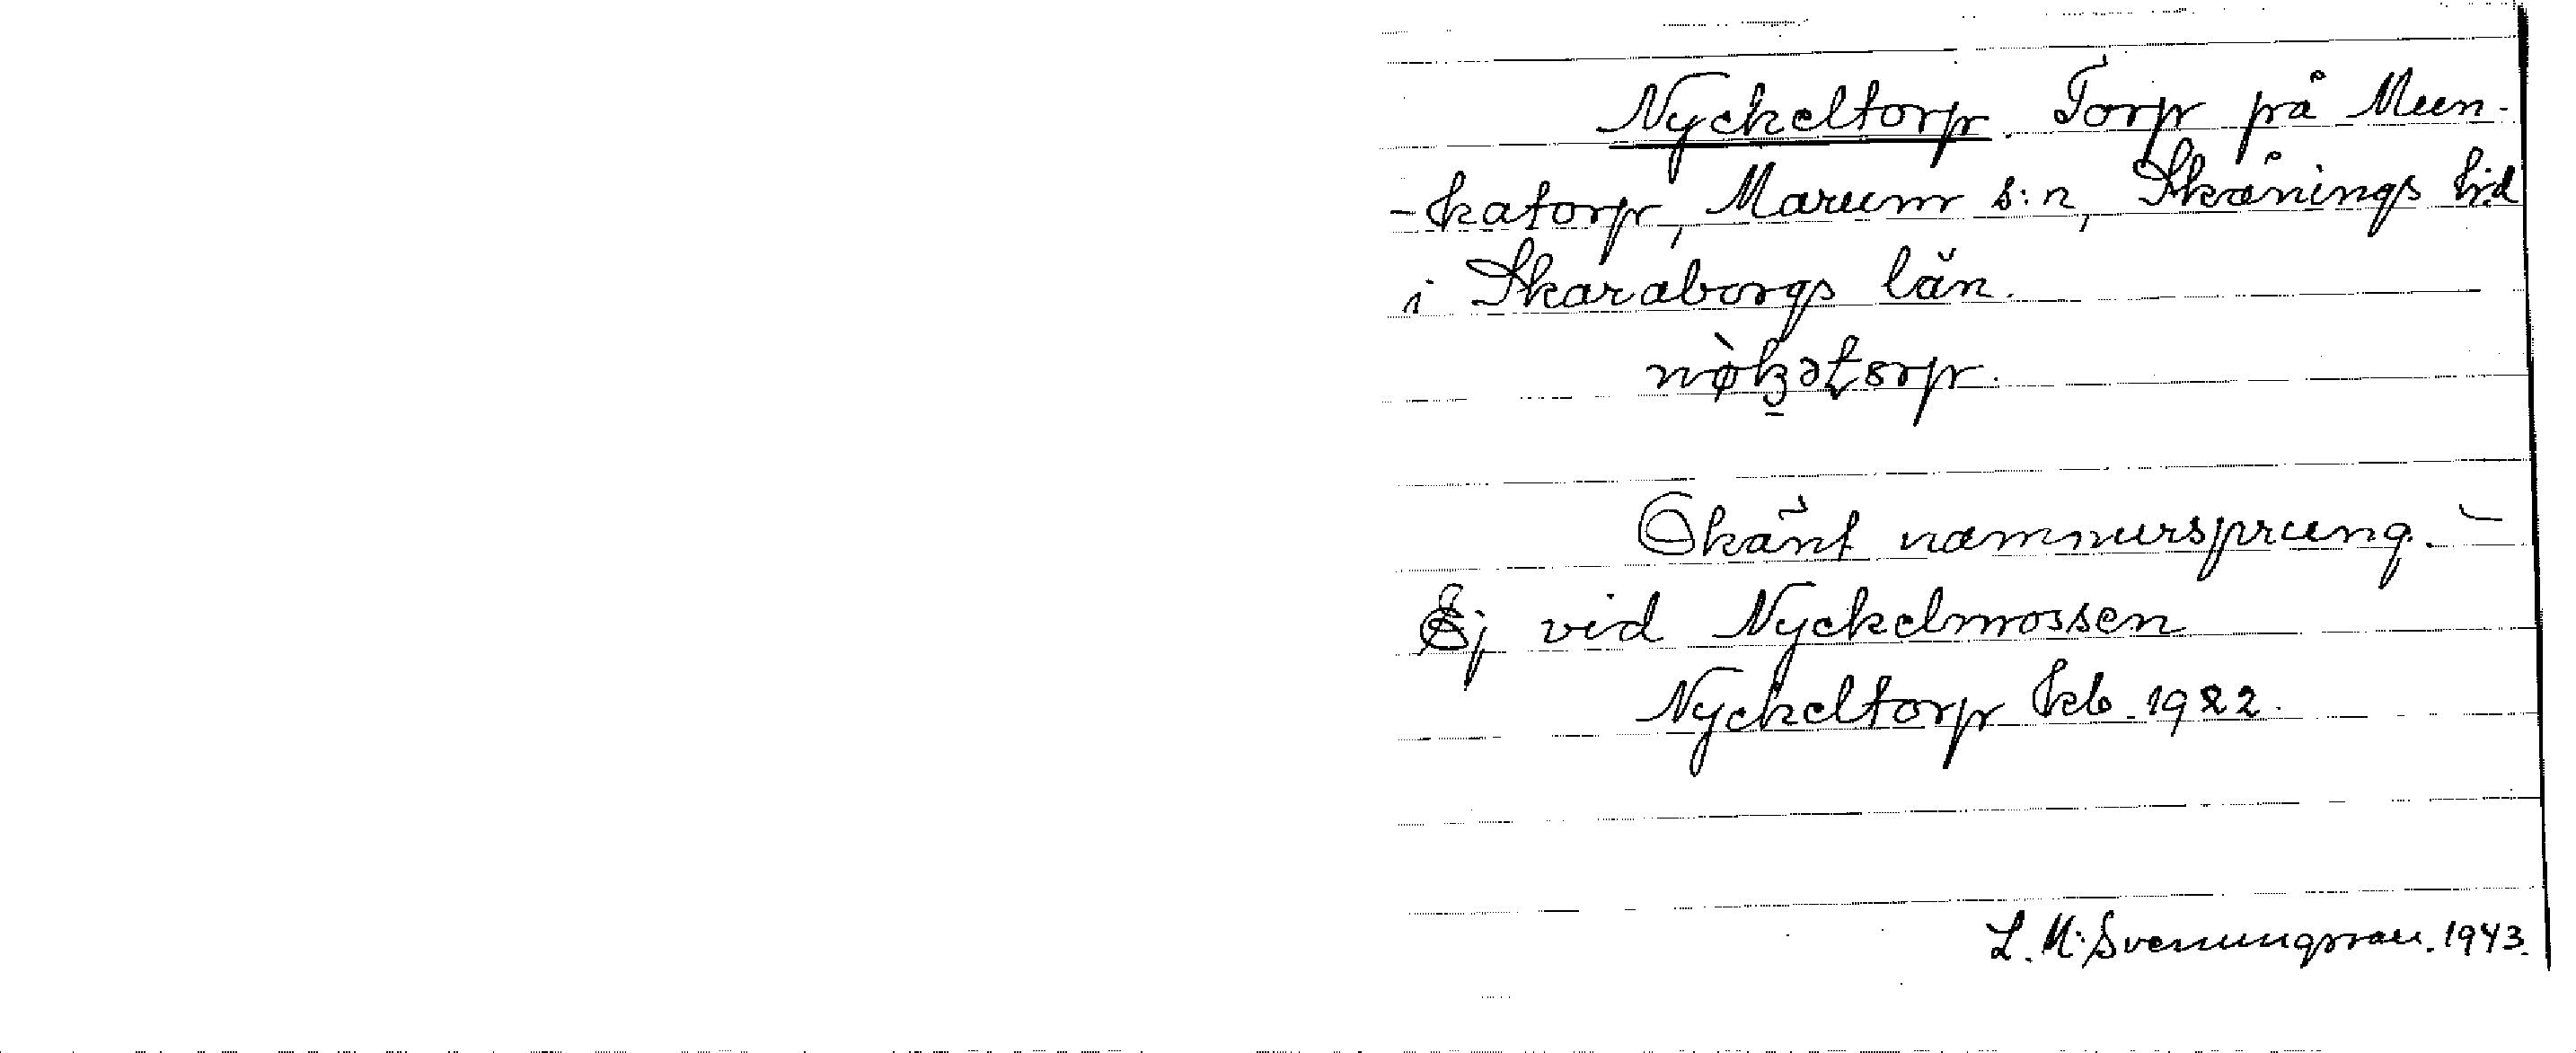 Nyckeltorp. Torp på Mun-
-katorp, Marum s:n, Skånings hd
i Skaraborgs län.
Okänt namnursprung. –
Ej vid Nyckelmossen
Nyckeltorp kb 1922.
L. M. Svenungsson. 1943.